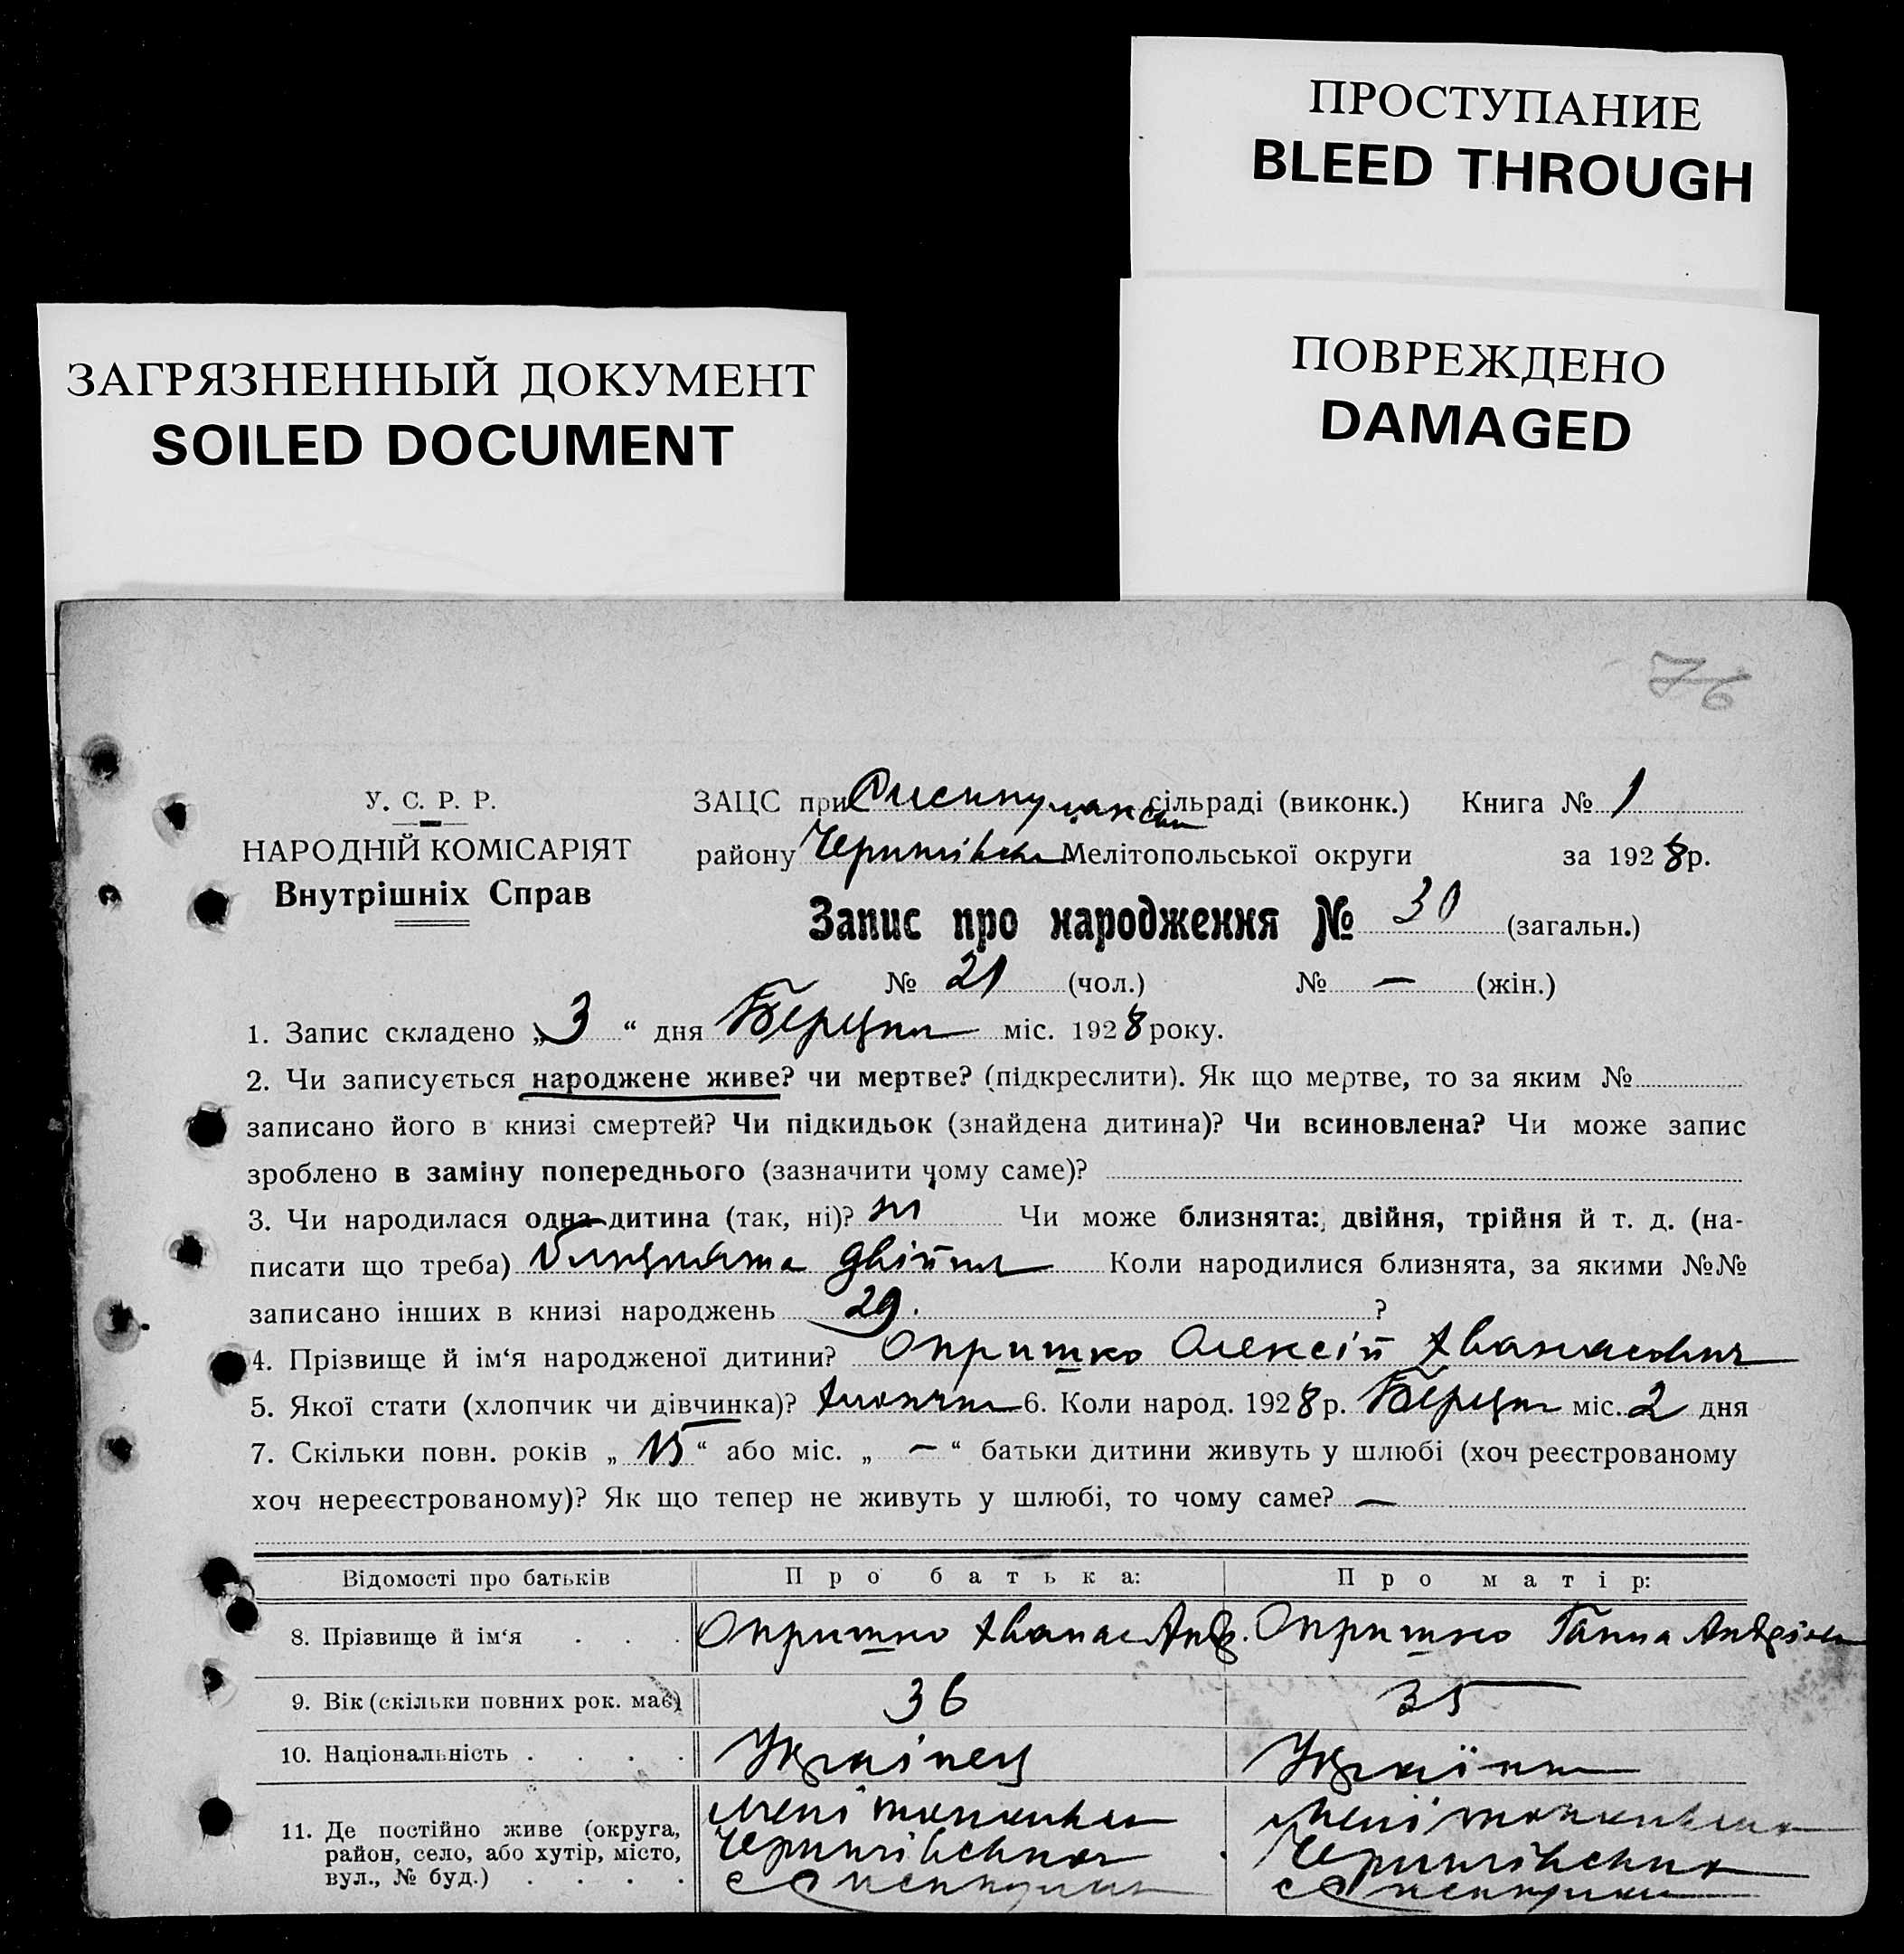 ПРОСТУПАНИЕ
BLEED THROUGH
ПОВРЕЖДЕНО
DAMAGED
ЗАГРЯЗНЕННЫЙ ДОКУМЕНТ
SOILED DOCUMENT
76
У. С. Р. Р.
НАРОДНІЙ КОМІСАРІЯТ
Внутрішніх Справ
ЗАЦС при сільраді (виконк.) Книга № 1
району Мелітопольської округи за 1928 р.
Запис про народження № 30 (загальн.)
№ 21 (чол.) № — (жін.)
1. Запис складено „3“ дня Березня міс. 1928 року.
2. Чи записується народжене живе? чи мертве? (підкреслити). Як що мертве, то за яким №
записано його в книзі смертей? Чи підкидьок (знайдена дитина)? Чи всиновлена? Чи може запис
зроблено в заміну попереднього (зазначити чому саме)?
3. Чи народилася одна дитина (так, ні)? ні Чи може близнята: двійня, трійня й т. д. (на-
писати що треба) близнята двійня Коли народилися близнята, за якими №№
записано інших в книзі народжень 29. ?
4. Прізвище й ім‘я народженої дитини? Опришко Олексій Аванасович
5. Якої стати (хлопчик чи дівчинка)? хлопчик 6. Коли народ. 1928 р. Березня міс. 2 дня
7. Скільки повн. років „15“ або міс. „—“ батьки дитини живуть у шлюбі (хоч реєстрованому
хоч нереєстрованому)? Як що тепер не живуть у шлюбі, то чому саме? —
Відомості про батьків Про батька: Про матір:
8. Прізвище й ім‘я . . . Опришко Аванас Андр. Опришко Ганна Андріевна
9. Вік (скільки повних рок. має) 36 35
10. Національність . . . . Українец Українка
11. Де постійно живе (округа,
район, село, або хутір, місто,
вул., № буд.) . . . .